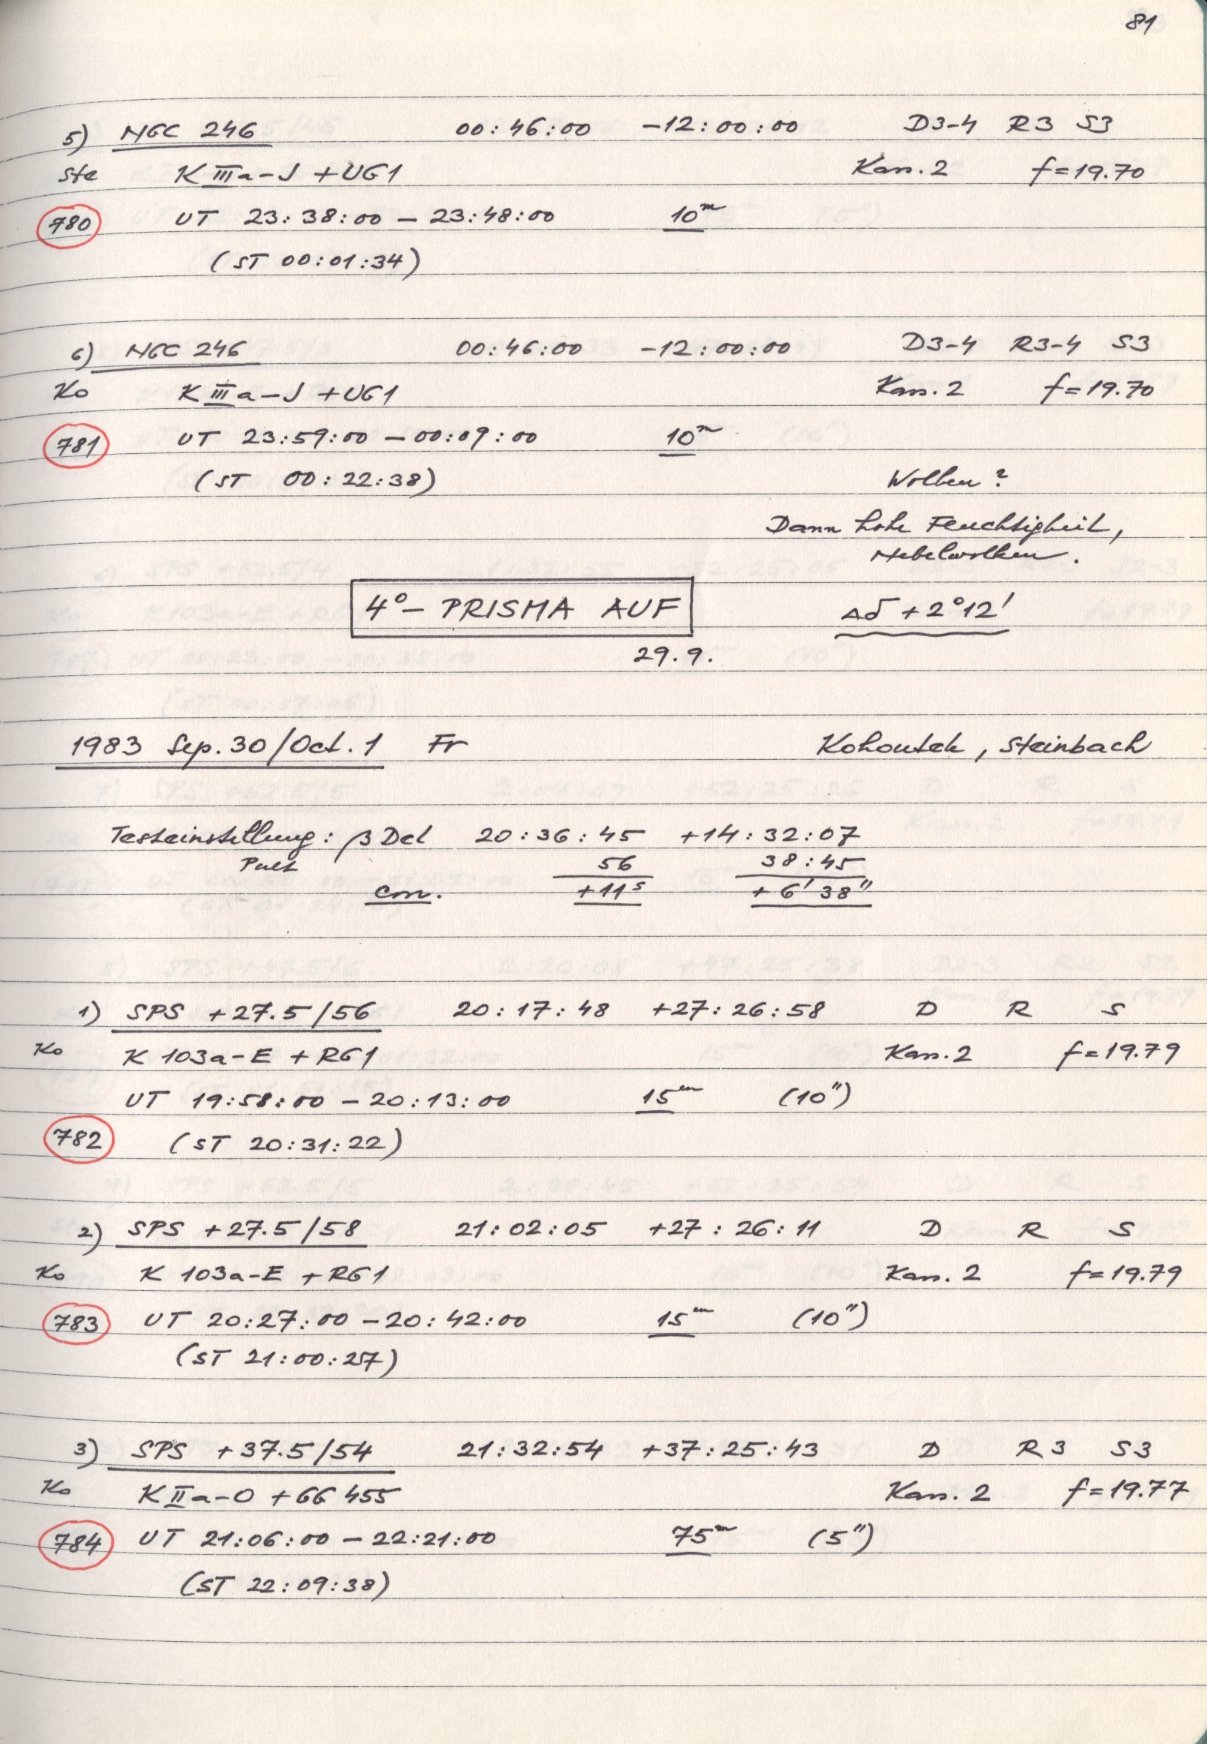 81
5) NGC 246 00:46:00 -12:00:00 D3-4 R3 S3
Ste K IIIa-J + UG1 Kas. 2 f=19.70
780 UT 23:38:00 - 23:48:00 10m
(ST 00:01:34)
6) NGC 246 00:46:00 -12:00:00 D3-4 R3-4 S3
Ko K IIIa-J + UG1 Kas. 2 f=19.70
781 UT 23:59:00 - 00:09:00 10m
(ST 00:22:38) Wolken?
Dann hohe Feuchtigkeit,
Nebelwolken.
4°- PRISMA AUF Δδ + 2°12'
29.9.
1983 Sep. 30/Oct. 1 Fr Kohoutek, Steinbach
Testeinstellung: β Del 20:36:45 +14:32:07
Pult 56 38:45
corr. +11s + 6' 38"
1) SPS +27.5/56 20:17:48 +27:26:58 D R S
Ko K 103a-E + RG1 Kas. 2 f=19.79
UT 19:58:00 - 20:13:00 15m (10")
782 (ST 20:31:22)
2) SPS +27.5/58 21:02:05 +27:26:11 D R S
Ko K 103a-E + RG1 Kas. 2 f=19.79
783 UT 20:27:00 - 20:42:00 15m (10")
(ST 21:00:27)
3) SPS +37.5/54 21:32:54 +37:25:43 D R3 S3
Ko K IIa-O + GG 455 Kas. 2 f=19.77
784 UT 21:06:00 - 22:21:00 75m (5")
(ST 22:09:38)